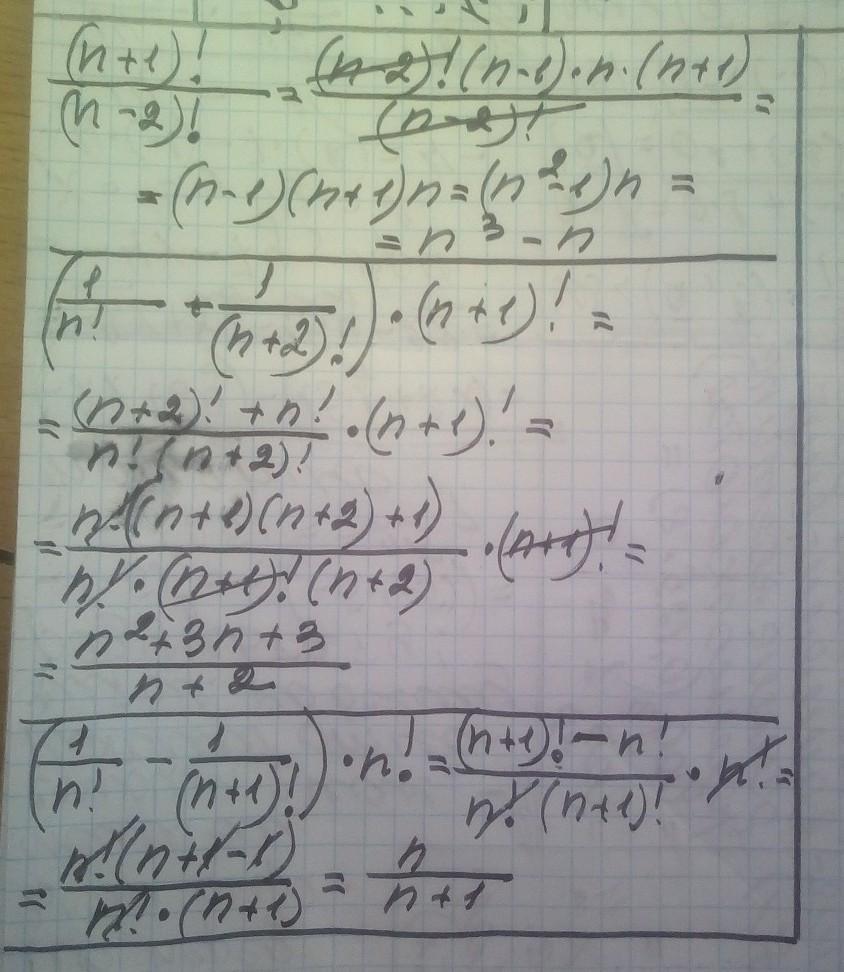 (n+1)!/(n-2)! = (n-2)!(n-1)·n·(n+1)/(n-2)! =
= (n-1)(n+1)n = (n²-1)n =
= n³ - n
(1/n! + 1/(n+2)!) · (n+1)! =
= ((n+2)! + n!)/(n!(n+2)!) · (n+1)! =
= n!((n+1)(n+2)+1)/(n! · (n+1)!(n+2)) · (n+1)! =
= (n²+3n+3)/(n+2)
(1/n! - 1/(n+1)!) · n! = ((n+1)! - n!)/(n!(n+1)!) · n! =
= n!(n+1-1)/(n! · (n+1)) = n/(n+1)